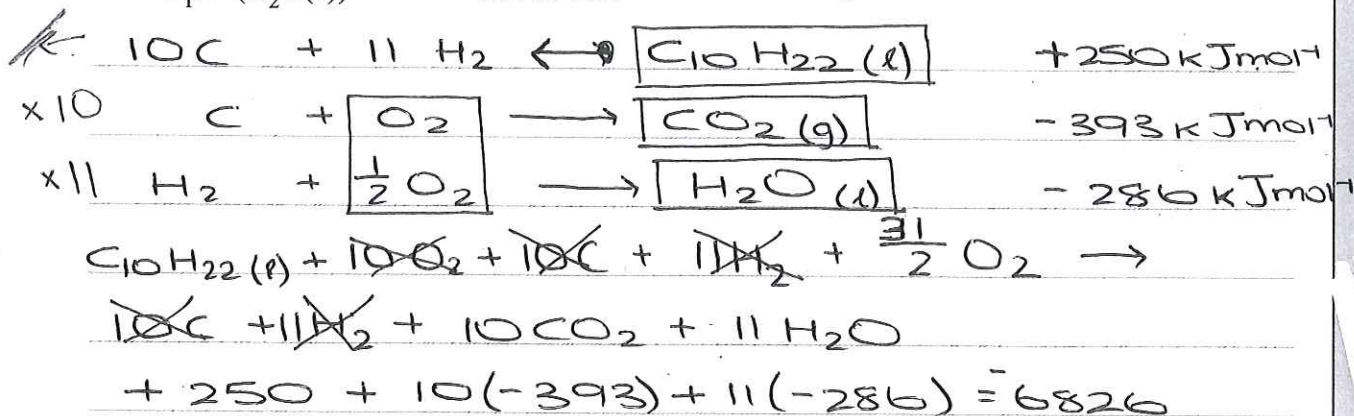 10C + 11 H₂ ⟷ C₁₀H₂₂ (l) +250 kJmol⁻¹
×10 C + O₂ ⟶ CO₂ (g) - 393 kJmol⁻¹
×11 H₂ + ½ O₂ ⟶ H₂O (l) - 286 kJmol⁻¹
C₁₀H₂₂ (l) + 10O₂ + 10C + 11H₂ + 31/2 O₂ ⟶
10C + 11H₂ + 10CO₂ + 11H₂O
+ 250 + 10(-393) + 11(-286) = -6826